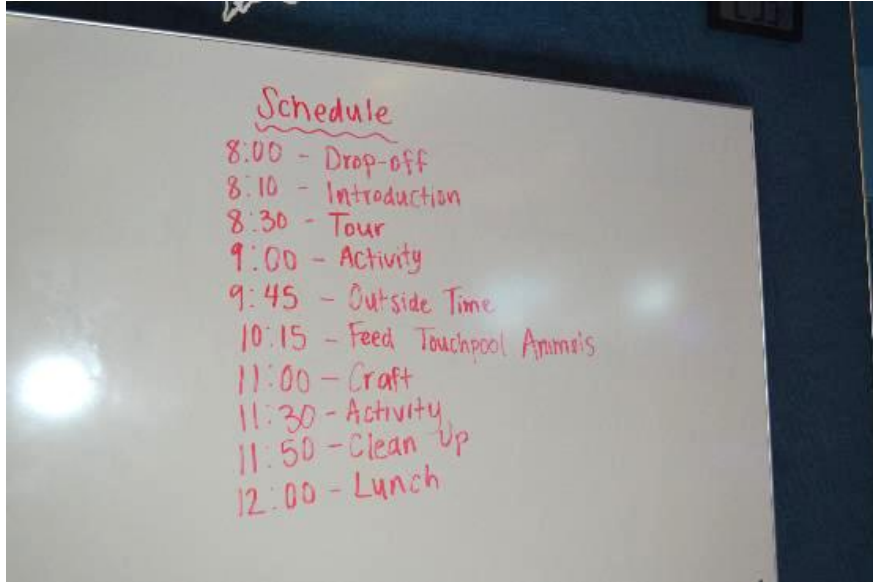 Schedule
8:00 - Drop-off
8:10 - Introduction
8:30 - Tour
9:00 - Activity
9:45 - Outside Time
10:15 - Feed Touchpool Animals
11:00 - Craft
11:30 - Activity
11:50 - Clean Up
12:00 - Lunch